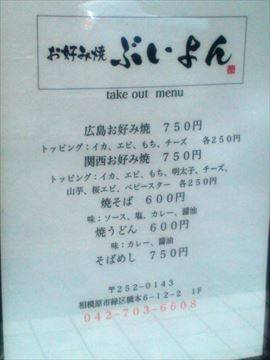 お好み焼 ぶいよん
take out menu
広島お好み焼 750円
トッピング：イカ、エビ、もち、チーズ 各250円
関西お好み焼 750円
トッピング：イカ、エビ、もち、明太子、チーズ、
山芋、桜エビ、ベビースター 各250円
焼そば 600円
味：ソース、塩、カレー、醤油
焼うどん 600円
味：カレー、醤油
そばめし 750円
〒252-0143
相模原市緑区橋本6-12-2 1F
042-703-6608